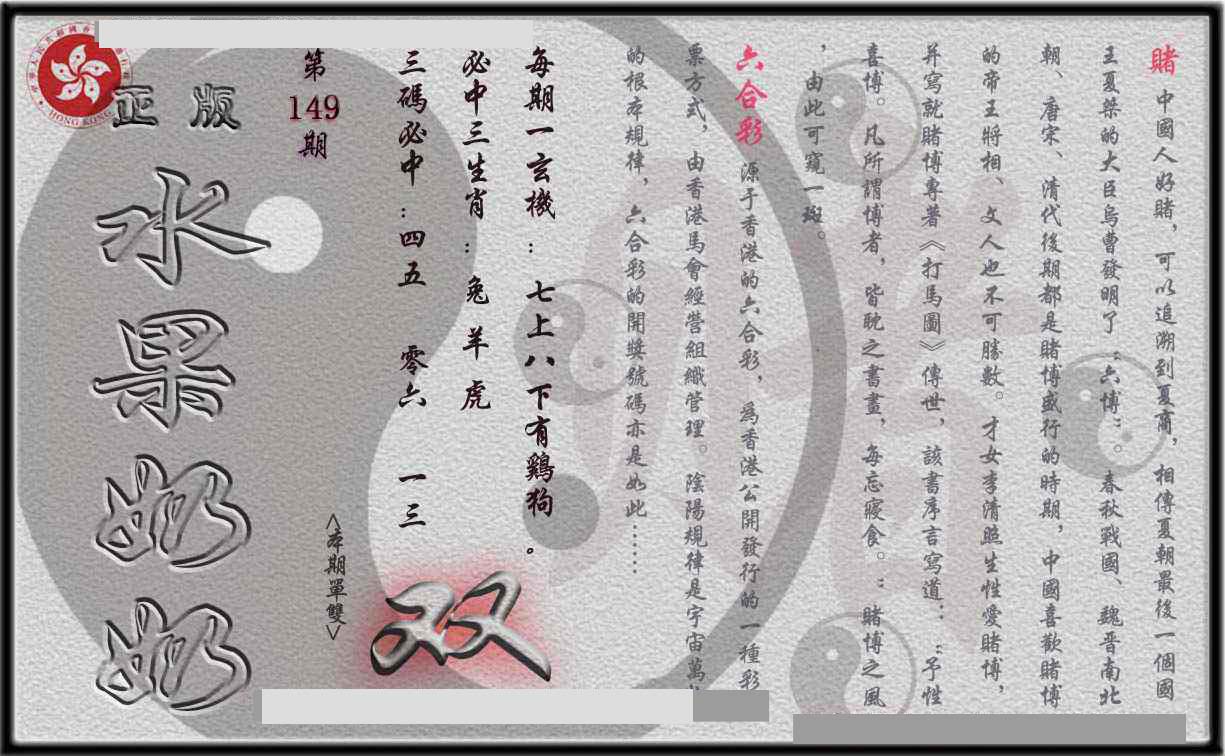 賭 中國人好賭，可以追溯到夏商，相傳夏朝最後一個國
王夏桀的大臣烏曹發明了“六博”。春秋戰國、魏晋南北
朝、唐宋、清代後期都是賭博盛行的時期，中國喜歡賭博
的帝王將相、文人也不可勝數。才女李清照生性愛賭博，
并寫就賭博專著《打馬圖》傳世，該書序言寫道：“予性
喜博。凡所謂博者，皆耽之書畫，每忘寢食。”賭博之風
，由此可窺一斑。
六合彩 源于香港的六合彩，爲香港公開發行的一種彩
票方式，由香港馬會經營組織管理。陰陽規律是宇宙萬
的根本規律，六合彩的開獎號碼亦是如此……
每期一玄機：七上八下有鷄狗。
必中三生肖：兔羊虎
三碼必中：四五 零六 一三
双
<本期單雙>
第
149
期
正版
水果奶奶
HONG KONG